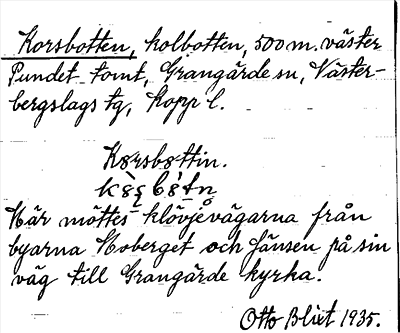 Korsbotten, kolbotten, 500 m. väster
Pundet tomt, Grangärde sn, Väster-
bergslags tg, Kopp l.
Kørsbøttin.
Här möttes klövjevägarna från
byarna Moberget och Jänsen på sin
väg till Grangärde kyrka.
Otto Blixt 1935.